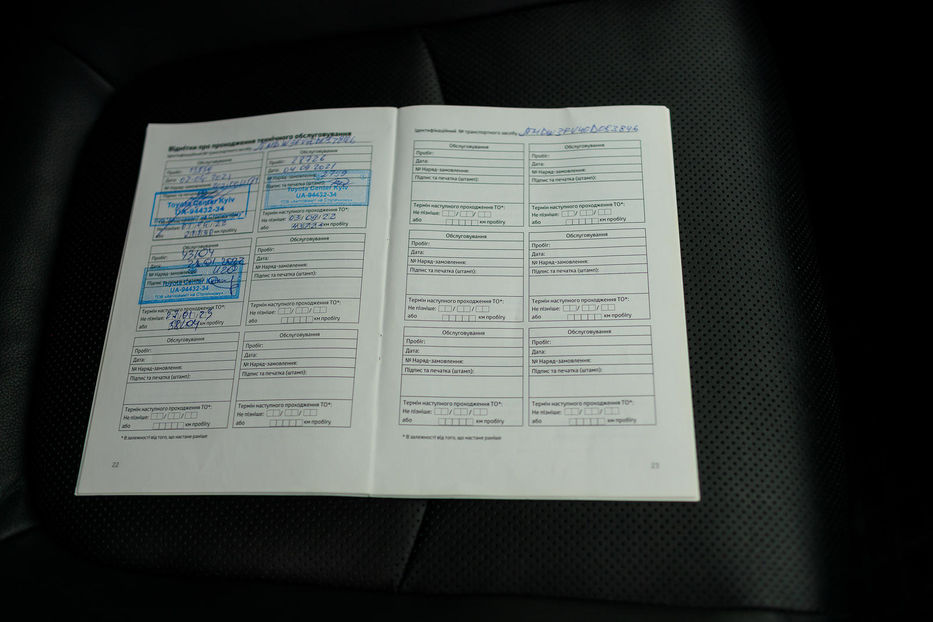 Відмітки про проходження технічного обслуговування
Ідентифікаційний № транспортного засобу
Обслуговування
Пробіг:
Дата: 02.04.2021
№ Наряд-замовлення:
Підпис та печатка
Toyota Center Kyiv
UA-94432-34
Не пізніше:
або км пробігу
Обслуговування
Пробіг: 28726
Дата: 04.09.2021
№ Наряд-замовлення:
Підпис та печатка (штамп):
Toyota Center Kyiv
UA-94432-34
Термін наступного проходження ТО*:
Не пізніше: 03/09/22
або км пробігу
Обслуговування
Пробіг: 43104
Дата:
№ Наряд-замовлення
Підпис
Toyota Center Kyiv
UA-94432-34
Термін наступного проходження ТО*:
Не пізніше: 27.01.23
або км пробігу
Обслуговування
Пробіг:
Дата:
№ Наряд-замовлення:
Підпис та печатка (штамп):
Термін наступного проходження ТО*:
Не пізніше: / /
або км пробігу
Обслуговування
Пробіг:
Дата:
№ Наряд-замовлення:
Підпис та печатка (штамп):
Термін наступного проходження ТО*:
Не пізніше: / /
або км пробігу
Обслуговування
Пробіг:
Дата:
№ Наряд-замовлення:
Підпис та печатка (штамп):
Термін наступного проходження ТО*:
Не пізніше: / /
або км пробігу
* В залежності від того, що настане раніше
22
Ідентифікаційний № транспортного засобу
Обслуговування
Пробіг:
Дата:
№ Наряд-замовлення:
Підпис та печатка (штамп):
Термін наступного проходження ТО*:
Не пізніше: / /
або км пробігу
Обслуговування
Пробіг:
Дата:
№ Наряд-замовлення:
Підпис та печатка (штамп):
Термін наступного проходження ТО*:
Не пізніше: / /
або км пробігу
Обслуговування
Пробіг:
Дата:
№ Наряд-замовлення:
Підпис та печатка (штамп):
Термін наступного проходження ТО*:
Не пізніше: / /
або км пробігу
Обслуговування
Пробіг:
Дата:
№ Наряд-замовлення:
Підпис та печатка (штамп):
Термін наступного проходження ТО*:
Не пізніше: / /
або км пробігу
Обслуговування
Пробіг:
Дата:
№ Наряд-замовлення:
Підпис та печатка (штамп):
Термін наступного проходження ТО*:
Не пізніше: / /
або км пробігу
Обслуговування
Пробіг:
Дата:
№ Наряд-замовлення:
Підпис та печатка (штамп):
Термін наступного проходження ТО*:
Не пізніше: / /
або км пробігу
* В залежності від того, що настане раніше
23